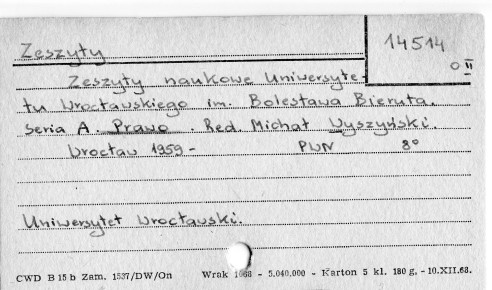 Zeszyty
14514
O II
Zeszyty naukowe Uniwersyte-
tu Wrocławskiego im. Bolesława Bieruta.
Seria A. Prawo. Red. Michał Wyszyński.
Wrocław 1959 - PWN 8°
Uniwersytet Wrocławski.
CWD B 15 b Zam. 1537/DW/On Wrak 1668 - 5.040.000 - Karton 5 kl. 180 g. - 10.XII.68.